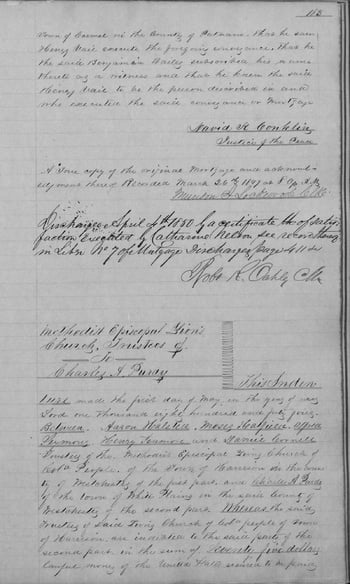 Town of Carmel in the County of Putnam. that he saw
Henry execute the foregoing conveyance. that he
the said Benjamin Bailey subscribed his name
thereto as a witness and that he knew the said
Henry to be the person described in and
who executed the said conveyance or Mortgage
David R Conklin
Justice of the Peace
A True copy of the original Mortgage and acknowl-
edgment thereof Recorded March 26th at 8 A.M.
Clk.
Discharged April 4th 1850 by a certificate of satis-
faction executed by Catharine Nelson see record thereof
in Liber No 7 of Mortgage Discharges page 411
Robt R. Oakley Clk
Methodist Episcopal Zion's
Church, Trustees of
To
Charles A. Purdy
This Inden
ture made the first day of May in the year of our
Lord one thousand eight hundred and forty
Between Aaron Moses
Henry and Daniel Cornell
Trustees of the Methodist Episcopal Zion Church of
Cold People, of the Town of Harrison in the Coun
ty of Westchester of the first part, and Charles A Purdy
of the town of White Plains in the said County of
Westchester of the second part. Whereas the said
Trustees of Said Zion Church of Cold people of Town
of Harrison, are indebted to the said party of the
second part in the sum of Seventy five dollars
Lawful money of the United States secured to be paid